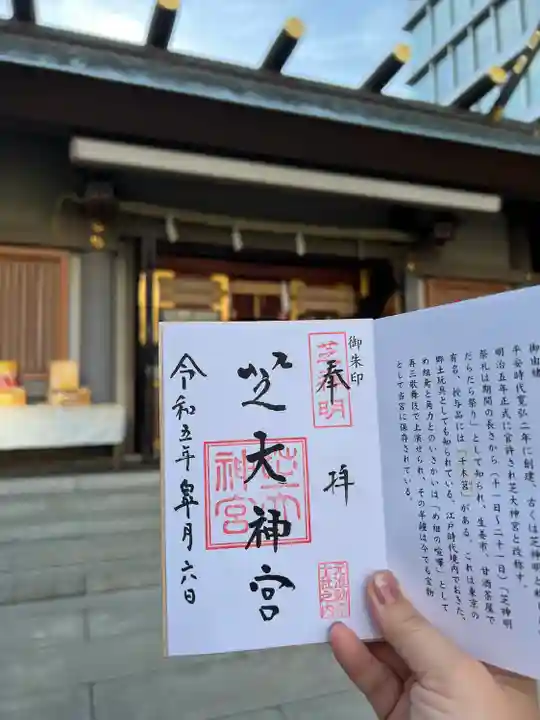 御由緒
平安時代寛弘二年に創建、古くは芝神明と称し
明治五年正式に官許され芝大神宮と改称す。
祭礼は期間の長さから(十一日～二十一日)「芝神明
だらだら祭り」として知られ、生姜市、甘酒茶屋で
有名。授与品には「千木筥」がある。これは東京の
郷土玩具としても知られている。江戸時代境内でおきた、
め組鳶と角力とのいさかいは「め組の喧嘩」として
再三歌舞伎で上演せられ、その半鐘は今でも宝物
として当宮に保存されている。
御朱印
奉拝
芝神明
芝大神宮
芝大神宮
令和五年皐月六日